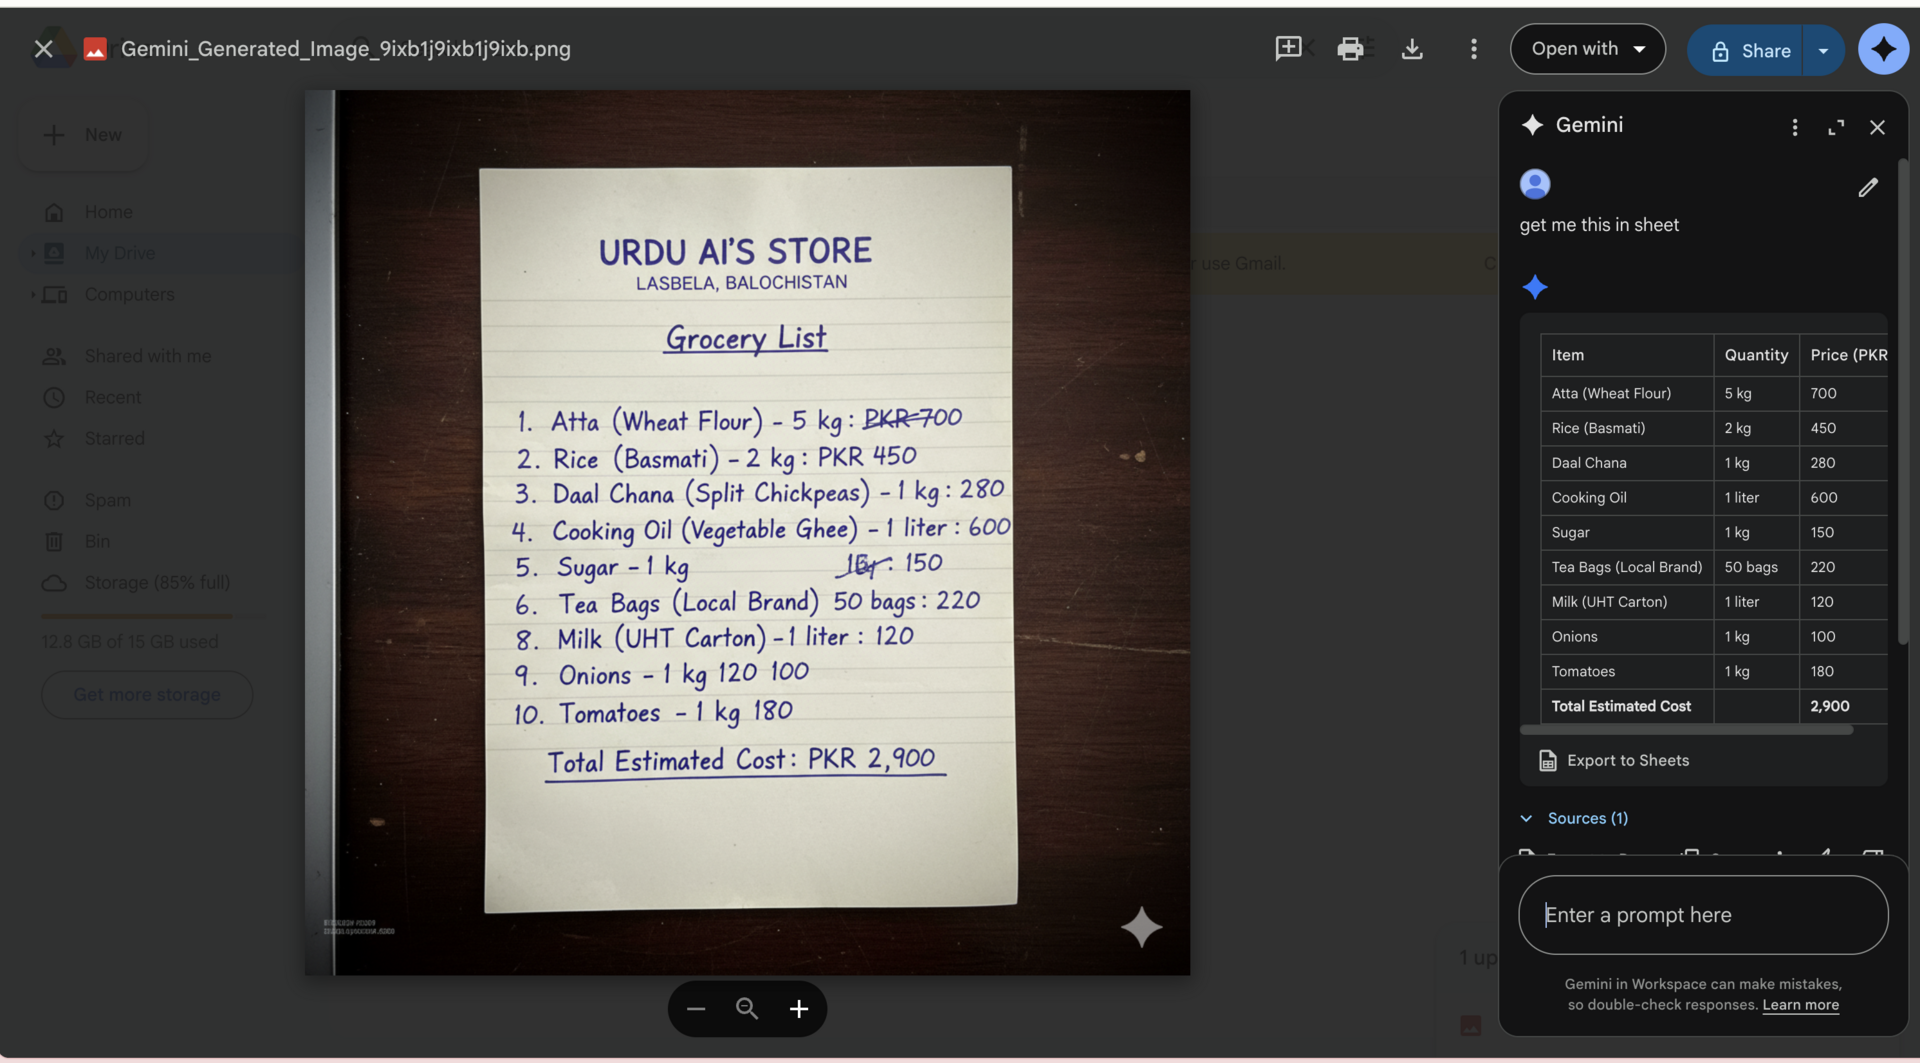 Gemini_Generated_Image_9ixb1j9ixb1j9ixb.png
Open with
Share
New
Home
My Drive
Computers
Shared with me
Recent
Starred
Spam
Bin
Storage (85% full)
12.8 GB of 15 GB used
Get more storage
r use Gmail.
C
URDU AI'S STORE
LASBELA, BALOCHISTAN
Grocery List
1. Atta (Wheat Flour) - 5 kg: PKR 700
2. Rice (Basmati) - 2 kg: PKR 450
3. Daal Chana (Split Chickpeas) - 1 kg: 280
4. Cooking Oil (Vegetable Ghee) - 1 liter: 600
5. Sugar - 1 kg : 150
6. Tea Bags (Local Brand) 50 bags: 220
8. Milk (UHT Carton) - 1 liter: 120
9. Onions - 1 kg 120 100
10. Tomatoes - 1 kg 180
Total Estimated Cost: PKR 2,900
1 up
Gemini
get me this in sheet
Item Quantity Price (PKR
Atta (Wheat Flour) 5 kg 700
Rice (Basmati) 2 kg 450
Daal Chana 1 kg 280
Cooking Oil 1 liter 600
Sugar 1 kg 150
Tea Bags (Local Brand) 50 bags 220
Milk (UHT Carton) 1 liter 120
Onions 1 kg 100
Tomatoes 1 kg 180
Total Estimated Cost 2,900
Export to Sheets
Sources (1)
Enter a prompt here
Gemini in Workspace can make mistakes,
so double-check responses. Learn more